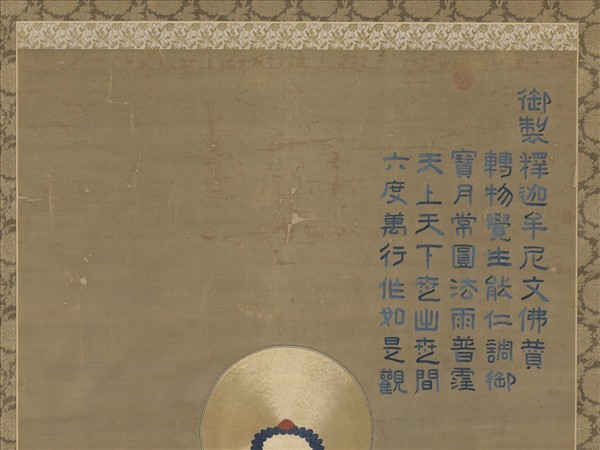 御製釋迦牟尼文佛贊
轉物覺生能仁調御
寶月常圓法雨普霔
天上天下世出世間
六度萬行作如是觀